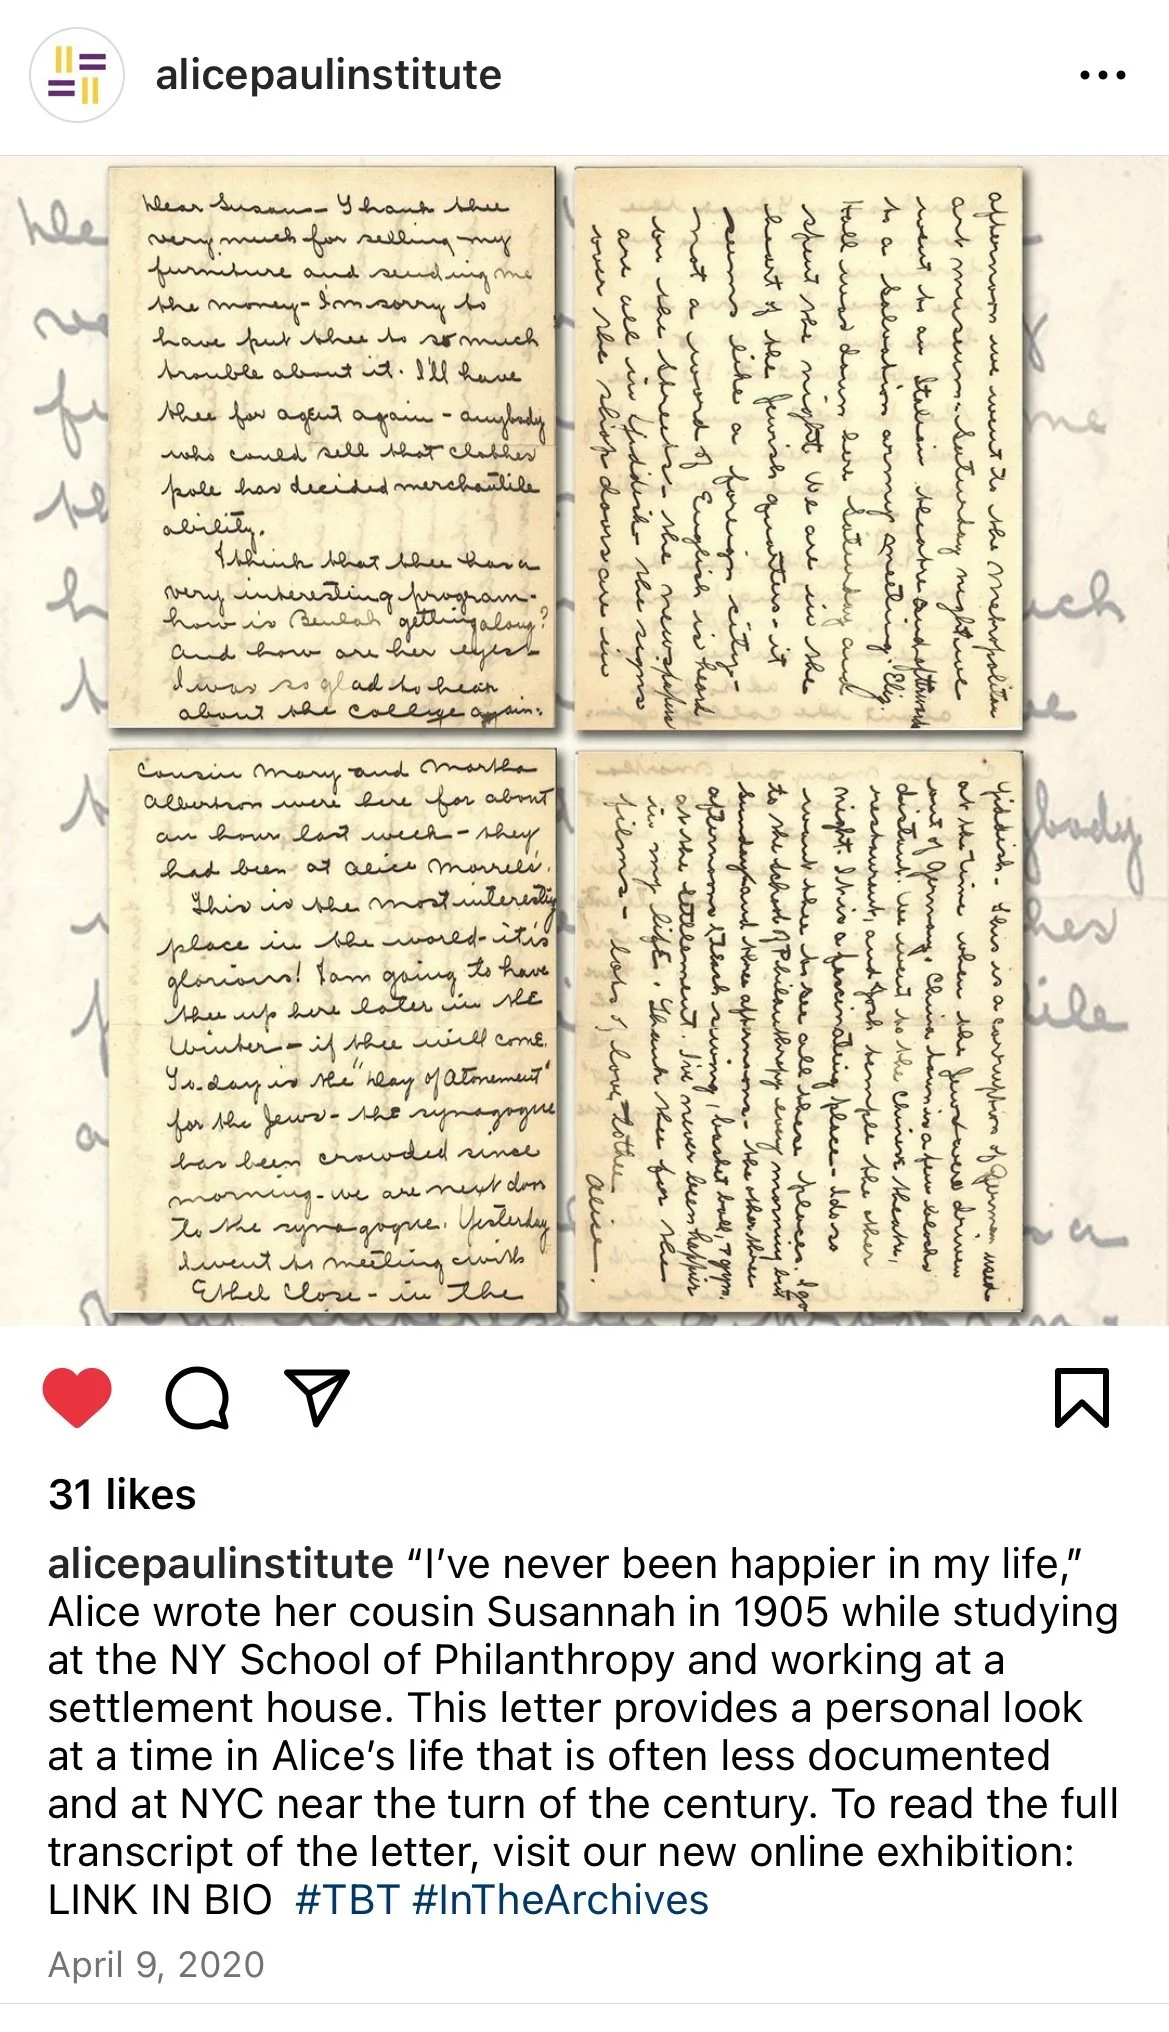 alicepaulinstitute
Dear Susan - I thank thee
very much for selling my
furniture and sending me
the money - I'm sorry to
have put thee to so much
trouble about it. I'll have
thee for agent again - anybody
who could sell that clothes
pole has decided merchantile
ability.
I think that thee has a
very interesting program -
how is Beulah getting along?
And how are her eyes?
I was so glad to hear
about the college again.
Cousin Mary and Martha
Albertson were here for about
an hour last week - they
had been at Alice Morrell's.
This is the most interesting
place in the world - it is
glorious! I am going to have
thee up here later in the
Winter - if thee will come.
To-day is the "Day of Atonement"
for the Jews - the synagogue
has been crowded since
morning - we are next door
to the synagogue. Yesterday
I went to meeting with
Ethel Close - in the
afternoon we went to the Metropolitan
art museum. Saturday night we
went to an Italian theatre and afterwards
to a Salvation army meeting. Eliz.
Hall was down here Saturday and
spent the night. We are in the
heart of the Jewish quarters - it
seems like a foreign city -
not a word of English is heard
on the streets - the newspapers
are all in Yiddish - the signs
over the shop doors are in
Yiddish - this is a corruption of German used
at the time when the Jews were driven
out of Germany. China town is a few blocks
distant. We went to the Chinese theatre,
restaurant, and Josh temple the other
night. It is a fascinating place - I do so
want thee to see all these places. I go
to the School of Philanthropy every morning but
Sunday and three afternoons - the other three
afternoons I teach sewing, basket ball, & gym.
at the settlement. I've never been happier
in my life. Thank thee for the
films - lots of love to thee
Alice.
31 likes
alicepaulinstitute “I’ve never been happier in my life,”
Alice wrote her cousin Susannah in 1905 while studying
at the NY School of Philanthropy and working at a
settlement house. This letter provides a personal look
at a time in Alice’s life that is often less documented
and at NYC near the turn of the century. To read the full
transcript of the letter, visit our new online exhibition:
LINK IN BIO #TBT #InTheArchives
April 9, 2020